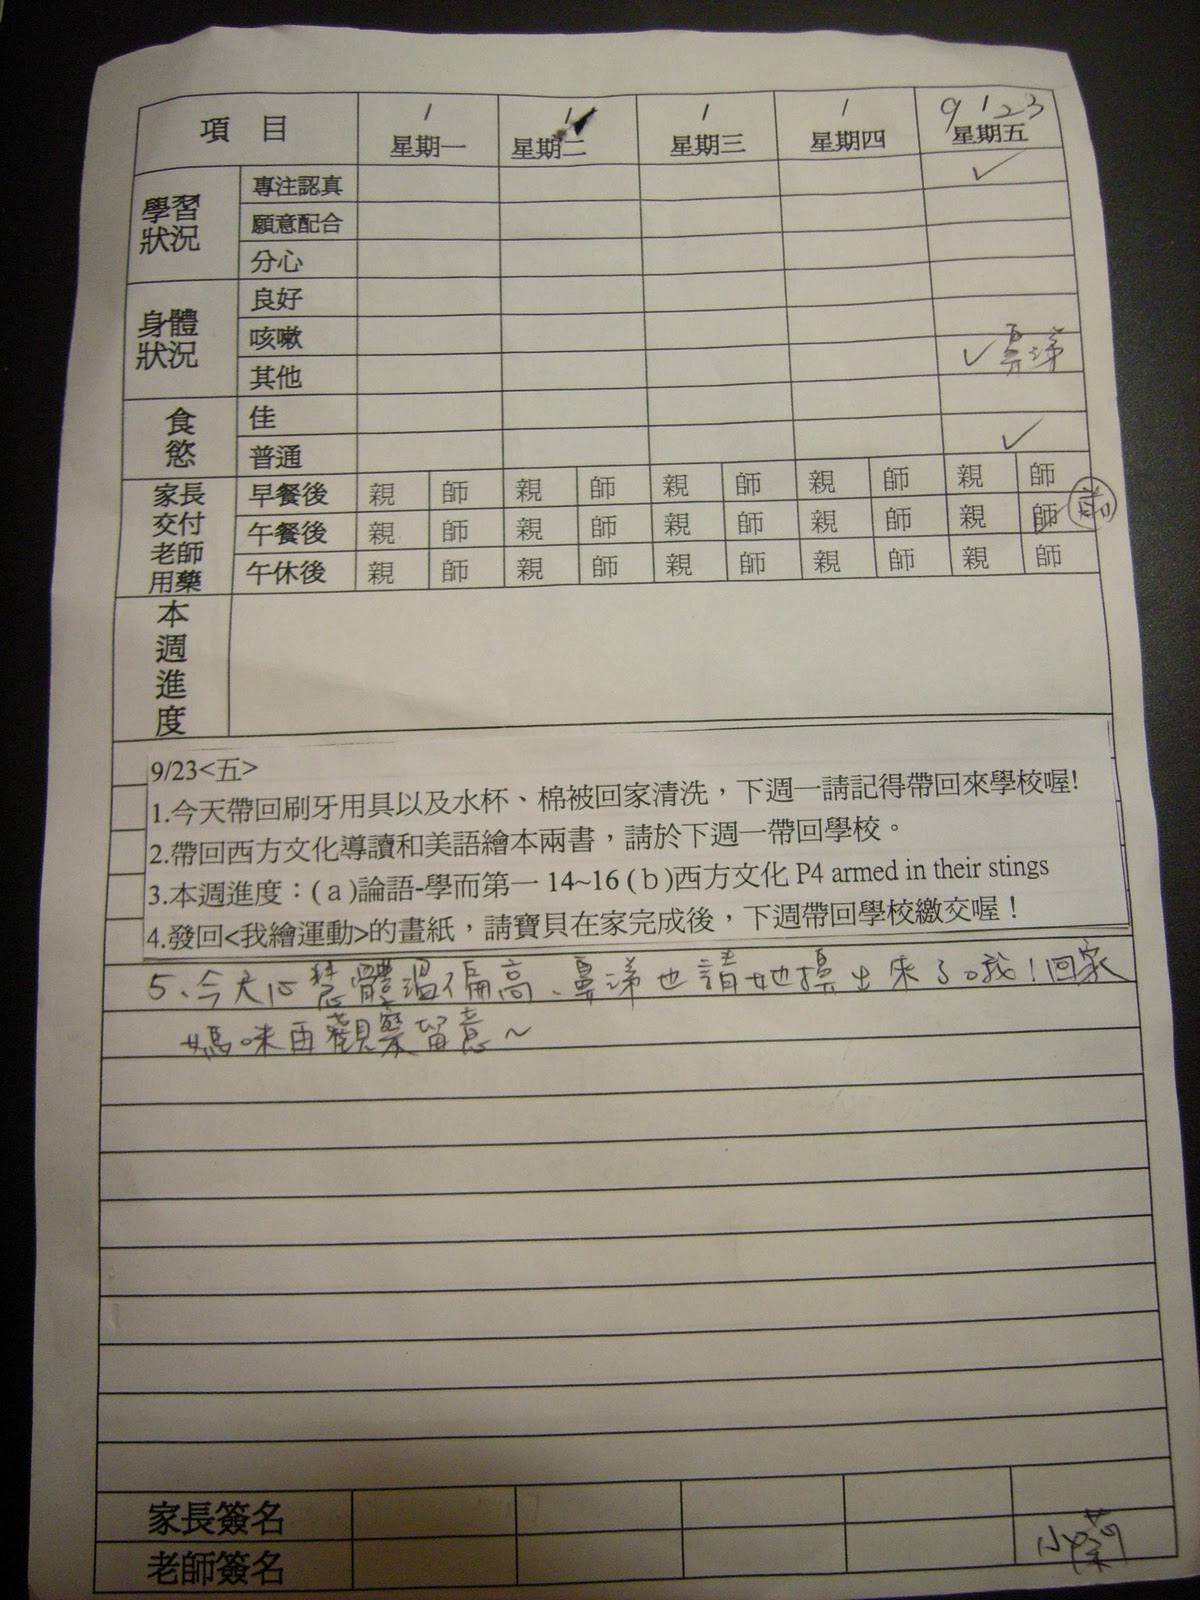 項 目 / 星期一 / 星期二 / 星期三 / 星期四 9/23 星期五
學習狀況 專注認真 ✓
願意配合
分心
身體狀況 良好
咳嗽
其他 ✓鼻涕
食慾 佳
普通 ✓
家長交付老師用藥 早餐後 親 師 親 師 親 師 親 師 親 師
午餐後 親 師 親 師 親 師 親 師 親 師
午休後 親 師 親 師 親 師 親 師 親 師
本週進度
9/23<五>
1.今天帶回刷牙用具以及水杯、棉被回家清洗，下週一請記得帶回來學校喔!
2.帶回西方文化導讀和美語繪本兩書，請於下週一帶回學校。
3.本週進度：(a)論語-學而第一 14~16 (b)西方文化 P4 armed in their stings
4.發回<我繪運動>的畫紙，請寶貝在家完成後，下週帶回學校繳交喔！
5、今天心慧體溫偏高、鼻涕也請她擤出來了哦！回家
媽咪再觀察留意～
家長簽名
老師簽名